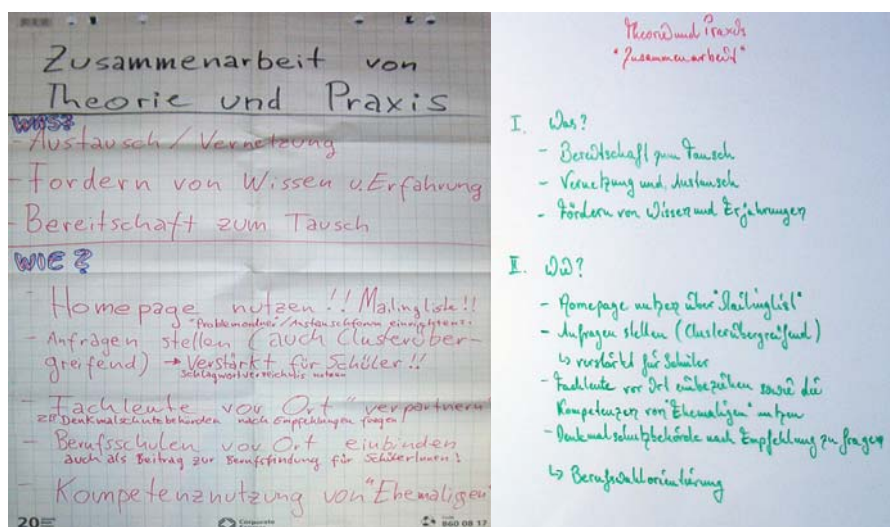 Zusammenarbeit von
Theorie und Praxis
WAS?
- Austausch / Vernetzung
- Fordern von Wissen u. Erfahrung
- Bereitschaft zum Tausch
WIE?
- Homepage nutzen!! Mailingliste!!
"Problemordner/Austauschforum einrichten".
- Anfragen stellen (auch Clusterüber-
greifend) → Verstärkt für Schüler!!
Schlagwortverzeichnis nutzen
- "Fachleute vor Ort" verpartnern
z.B. Denkmalschutzbehörden nach Empfehlungen fragen!
- Berufsschulen vor Ort einbinden
auch als Beitrag zur Berufsfindung für SchülerInnen!
- Kompetenznutzung von "Ehemaligen"
20
Corporate
860 08 17
Theorie und Praxis
"Zusammenarbeit"
I. Was?
- Bereitschaft zum Tausch
- Vernetzung und Austausch
- Fördern von Wissen und Erfahrungen
II. Wie?
- Homepage nutzen über "Mailinglist"
- Anfragen stellen (Clusterübergreifend)
↳ verstärkt für Schüler
- Fachleute vor Ort einbeziehen sowie die
Kompetenzen von "Ehemaligen" nutzen
- Denkmalschutzbehörde nach Empfehlung zu fragen
↳ Berufswahlorientierung